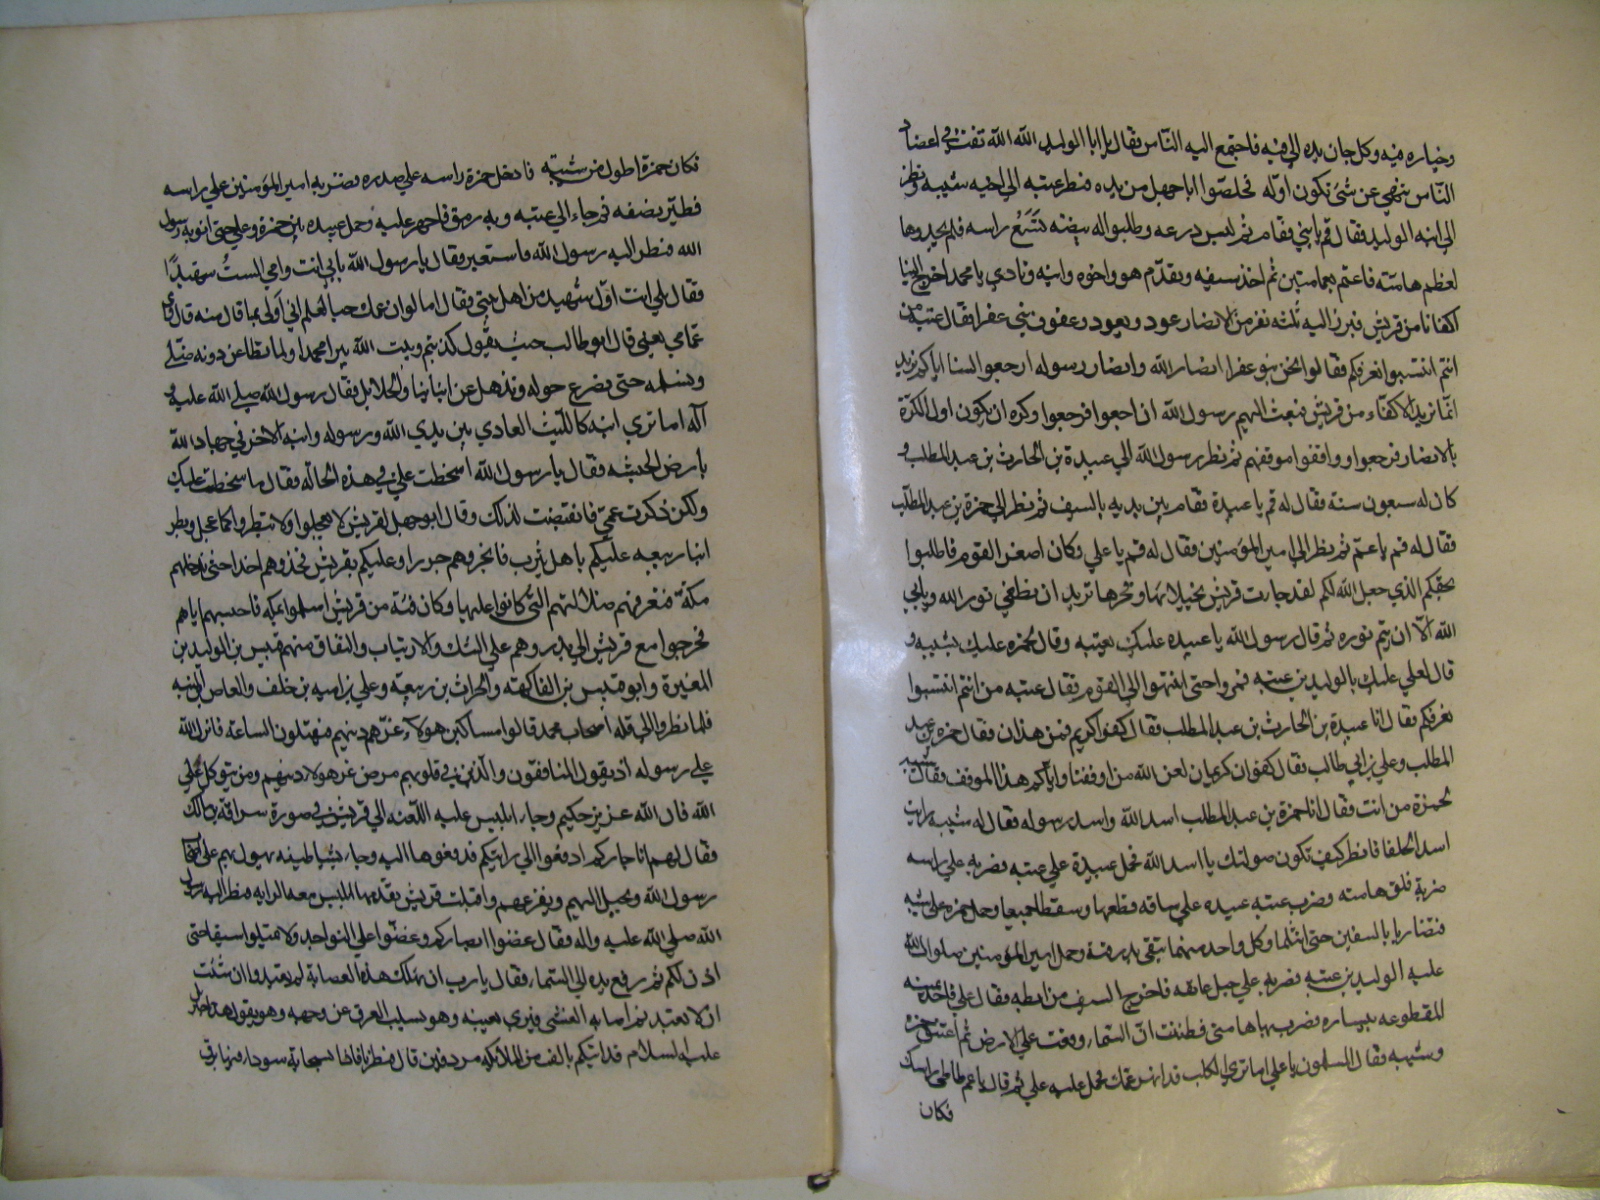 وخياره فيه وكل جان بده الى فيه فاجتمع اليه الناس فقال يا ابا الوليد الله الله تفت في اعضاد
الناس تنهى عن شئ تكون اوله فخلصوا ابا جهل من يده فنظر عتبه الى اخيه شيبه ونظر
الى ابنه الوليد فقال قم يا بني فقام ثم لبس درعه وطلبوا له بيضه تسع راسه فلم يجدوها
لعظم هامته فاعتم بعمامتين ثم اخذ سيفه وتقدم هو واخوه وابنه ونادى يا محمد اخرج الينا
اكفانا من قريش فبرز اليه ثلثه نفر من الانصار عود ومعود وعوف بني عفرا فقال عتبه من
انتم انتسبوا نعرفكم فقالوا نحن بنو عفرا انصار الله وانصار رسوله ارجعوا لسنا اياكم نريد
انما نريد الاكفاء من قريش فبعث اليهم رسول الله ان ارجعوا فرجعوا وكره ان يكون اول الكرة
بالانصار فرجعوا ووافقوا موقفهم ثم نظر رسول الله الى عبيدة بن الحارث بن عبد المطلب و
كان له سبعون سنة فقال له قم يا عبيدة فقام بين يديه بالسيف ثم نظر الى حمزة بن عبد المطلب
فقال له قم يا عم ثم نظر الى امير المؤمنين فقال له قم يا علي وكان اصغر القوم فاطلبوا
بحقكم الذي جعل الله لكم لقد جاءت قريش بخيلائها وفخرها تريد ان تطفئ نور الله ويابى
الله الا ان يتم نوره ثم قال رسول الله يا عبيده عليك بعتبه وقال لحمزه عليك بشيبه و
قال لعلي عليك بالوليد بن عتبه فمروا حتى انتهوا الى القوم فقال عتبه من انتم انتسبوا
نعرفكم فقال انا عبيدة بن الحارث بن عبد المطلب فقال كفو اكريم فمن هذان فقال حمزه بن عبد
المطلب وعلي بن ابي طالب فقال كفوان كريمان لعن الله من اوقفنا واياكم هذا الموقف فقال شيبه
لحمزة من انت فقال انا حمزة بن عبد المطلب اسد الله واسد رسوله فقال له شيبه رايت
اسد الحلفا فانظر كيف تكون صولتك يا اسد الله فحمل عبيدة على عتبه فضربه على راسه
ضربة فلق هامته وضرب عتبه عبيده على ساقه قطعها وسقطا جميعا وحمل حمزه على شيبه
فتضاربا بالسيفين حتى انثلما وكل واحد منهما يتقى بدرقته وحمل امير المؤمنين صلوات الله
عليه الوليد بن عتبه فضربه على حبل عاتقه فاخرج السيف من ابطه فقال علي فاخذ يمينه
المقطوعه بيساره فضرب بها هامتى فظننت ان السماء وقعت على الارض ثم اعتنق حمزه
وشيبه فقال المسلمون يا علي اما ترى الكلب قد عمك فحمل عليه علي ثم قال يا عم طاطئ راسك
فكان
فكان حمزة اطول من شيبه فادخل حمزة راسه على صدره فضربه امير المؤمنين على راسه
فطير نصفه ثم جاء الى عتبه وبه رمق فاجهز عليه وحمل عبيده بين حمزة وعلي حتى اتو به رسول
الله فنظر اليه رسول الله واستعبر فقال يا رسول الله بابي انت وامي الست شهيدا
فقال بلى انت اول شهيد من اهل بيتي فقال اما لو ان عمك حيا لعلم اني اولى بما قال منه قال واي
عمامي تعني قال ابو طالب حيث يقول كذبتم وبيت الله يبرا محمدا ولما نطاعن دونه ونناضل
ونسلمه حتى نصرع حوله ونذهل عن ابنائنا والحلائل فقال رسول الله صلى الله عليه و
آله اما ترى ابنه كالليث العادي بين يدي الله ورسوله وابنه الاخر في جهاد الله
بارض الحبشه فقال يا رسول الله اسخطت علي في هذه الحاله فقال ما سخطت عليك
ولكن ذكرت عمي فانقبضت لذلك وقال ابو جهل لقريش لا تعجلوا ولا تبطروا كما عجل وبطر
ابنا ربيعه عليكم باهل يثرب فانجروهم جزرا وعليكم بقريش فخذوهم اخذا حتى ندخلهم
مكة فنعرفهم ضلالتهم التي كانوا عليها وكان فئة من قريش اسلموا بمكه فاحتبسهم اباهم
فخرجوا مع قريش الى بدر وهم على الشك والارتياب والنفاق منهم قيس بن الوليد بن
المغيرة وابو قيس بن الفاكهه والحارث بن ربيعه وعلي بن اميه بن خلف والعاص بن المنبه
فلما نظروا الى قلة اصحاب محمد قالوا مساكين هولاء غرهم دينهم فيقتلون الساعة فانزل الله
على رسوله اذ يقول المنافقون والذين في قلوبهم مرض غر هولا دينهم ومن يتوكل على
الله فان الله عزيز حكيم وجاء ابليس عليه اللعنه الى قريش في صورة سراقة بن مالك
فقال لهم انا جاركم ادفعوا الي رايتكم فدفعوها اليه وجاء بشياطينه يهول بهم على اصحاب
رسول الله ويخيل اليهم ويفزعهم واقبلت قريش يقدمها ابليس معه الرايه فنظر اليه رسول
الله صلى الله عليه واله فقال غضوا ابصاركم وعضوا على النواجد ولا تسلوا سيفا حتى
اذن لكم ثم رفع يده الى السماء فقال يا رب ان تهلك هذه العصابة لم تعبد وان شئت
ان لا تعبد ثم اصابه الغشى فسرى عنه وهو يسلت العرق عن وجهه وهو يقول هذا جبرئيل
عليه السلام قد اتيكم بالف من الملائكه مردفين قال فنظرنا فاذا بسحابة سوداء فيها برق